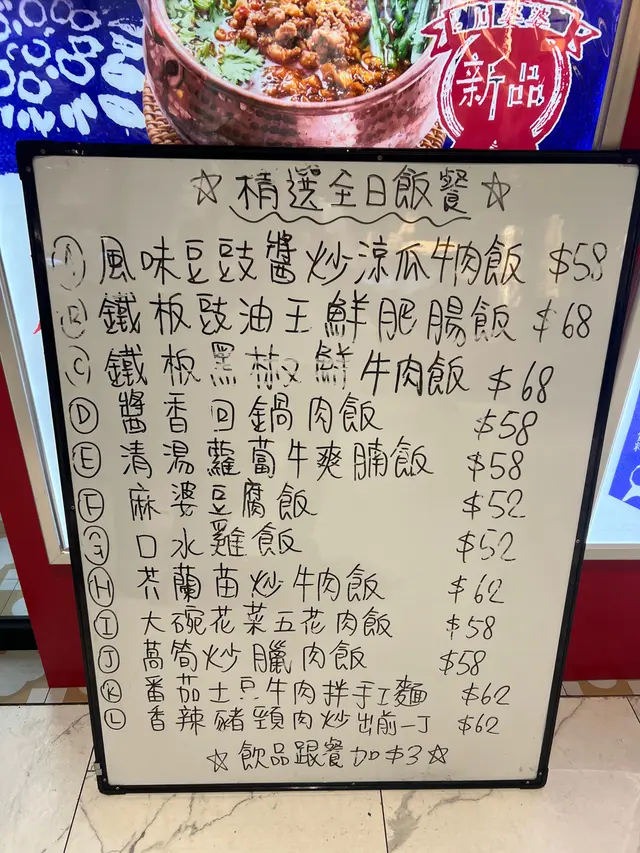 新品
☆精選全日飯餐☆
Ⓐ 風味豆豉醬炒涼瓜牛肉飯 $58
Ⓑ 鐵板豉油王鮮肥腸飯 $68
Ⓒ 鐵板黑椒鮮牛肉飯 $68
Ⓓ 醬香回鍋肉飯 $58
Ⓔ 清湯蘿蔔牛爽腩飯 $58
Ⓕ 麻婆豆腐飯 $52
Ⓖ 口水雞飯 $52
Ⓗ 芥蘭苗炒牛肉飯 $62
Ⓘ 大碗花菜五花肉飯 $58
Ⓙ 萵筍炒臘肉飯 $58
Ⓚ 番茄土豆牛肉拌手工麵 $62
Ⓛ 香辣豬頸肉炒出前一丁 $62
☆飲品跟餐加$3☆